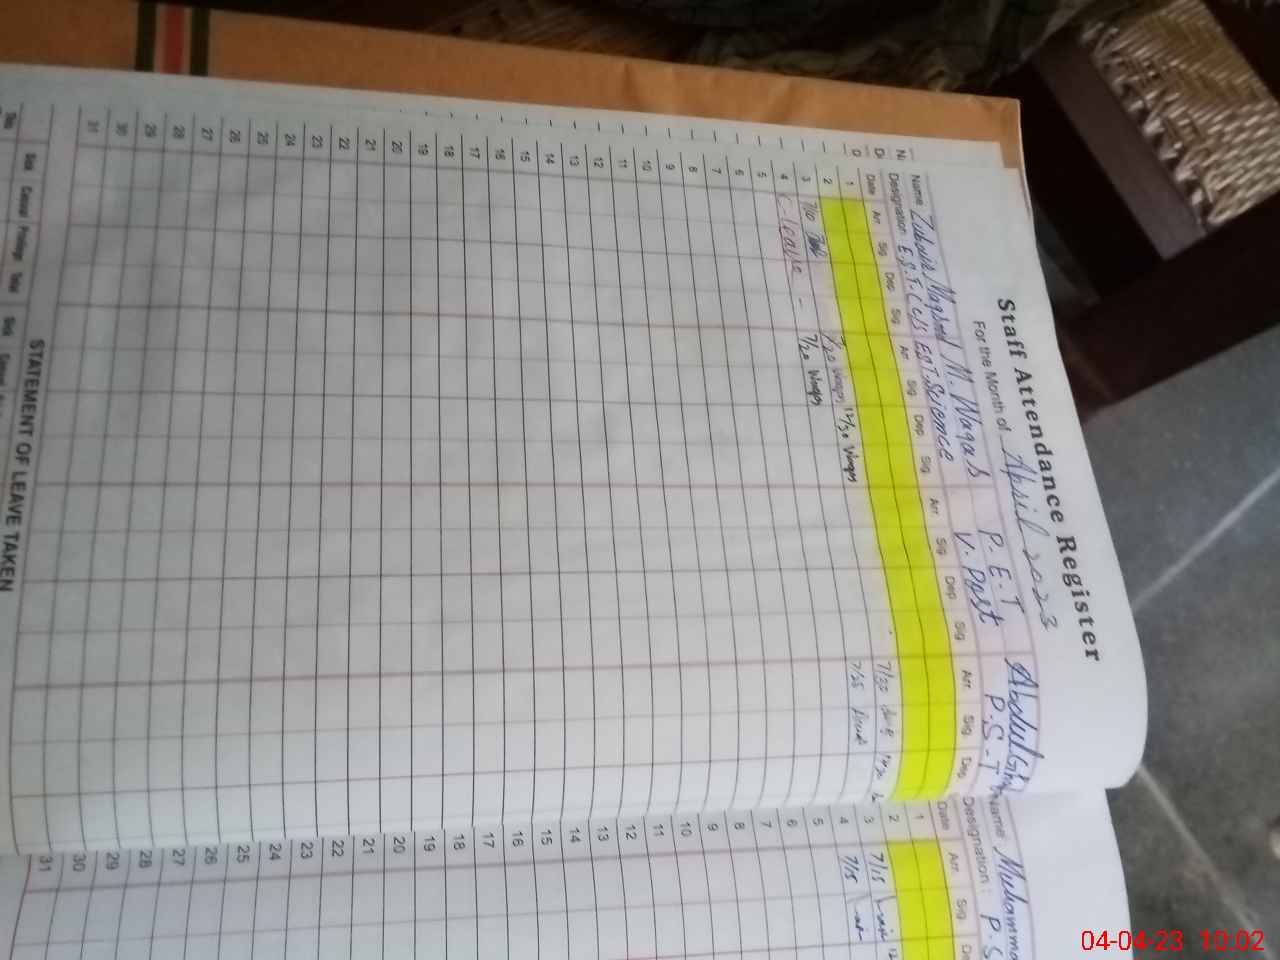 Staff Attendance Register
For the Month of April 2023
Name M. Waqas P.E.T
Designation E.S.T. EST. Science V. Post P.S.T
Date Arr. Sig. Dep. Sig. Arr. Sig. Dep. Sig. Arr. Sig. Dep. Sig. Arr. Sig. Dep.
1
2
3 7/20 Waqas 12/30 Waqas 7/30
4 C leave - 7/20 Waqas 7/25
5
6
7
8
9
10
11
12
13
14
15
16
17
18
19
20
21
22
23
24
25
26
27
28
29
30
31
STATEMENT OF LEAVE TAKEN
Sick Casual Privilege Total Sick Casual
Name
Designation : P.S
Date Arr. Sig.
1
2
3 7/15
4 7/15
5
6
7
8
9
10
11
12
13
14
15
16
17
18
19
20
21
22
23
24
25
26
27
28
29
30
31
04-04-23 10:02